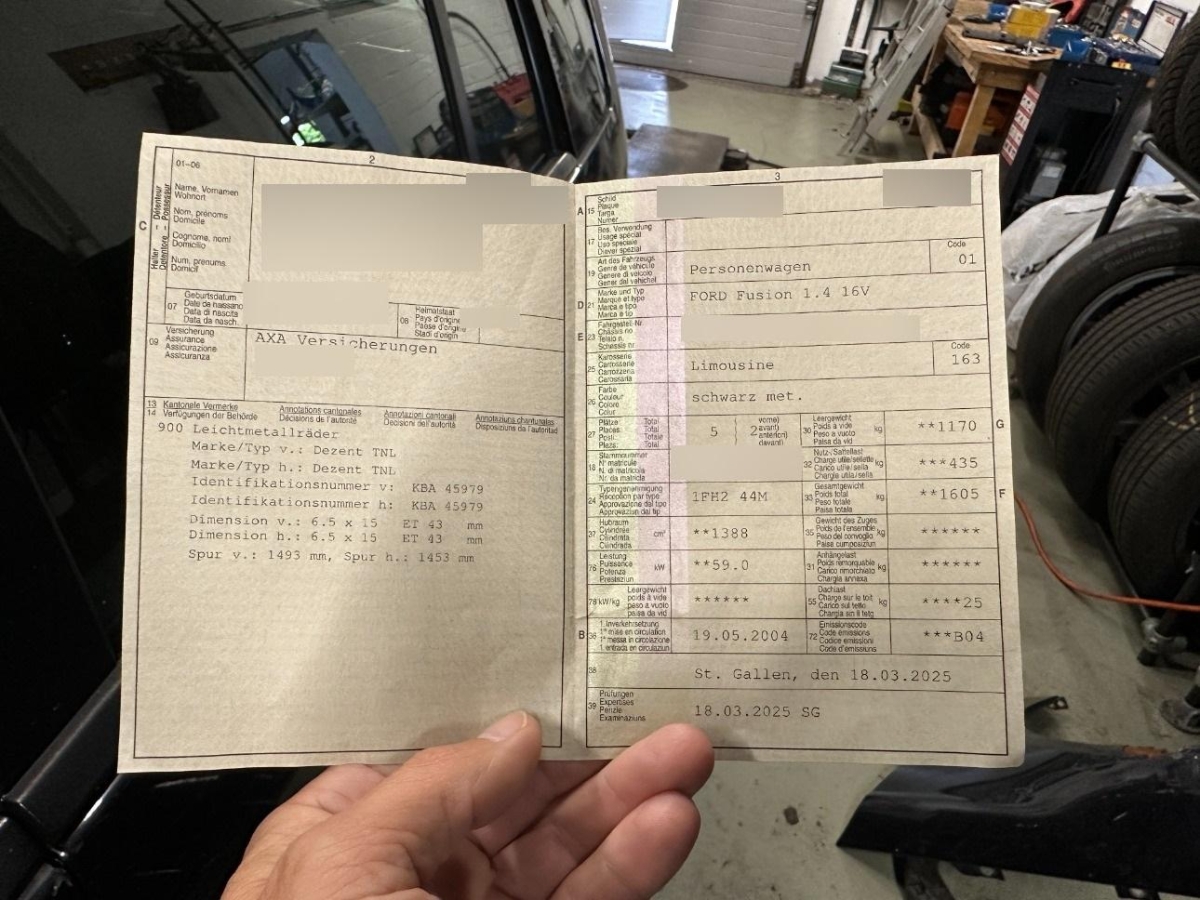 2
01–06
C
Halter Détenteur
Detentore Possessur
Name, Vornamen
Wohnort
Nom, prénoms
Domicile
Cognome, nomi
Domicilio
Num, prenums
Domicil
07
Geburtsdatum
Date de naissance
Data di nascita
Data da nasch.
08
Heimatstaat
Pays d'origine
Paese d'origine
Stadi d'origin
09
Versicherung
Assurance
Assicurazione
Assicuranza
AXA Versicherungen
13 Kantonale Vermerke Annotations cantonales Annotazioni cantonali Annotaziuns chantunalas
14 Verfügungen der Behörde Décisions de l'autorité Decisioni dell'autorità Disposiziuns da l'autoritad
900 Leichtmetallräder
Marke/Typ v.: Dezent TNL
Marke/Typ h.: Dezent TNL
Identifikationsnummer v: KBA 45979
Identifikationsnummer h: KBA 45979
Dimension v.: 6.5 x 15 ET 43 mm
Dimension h.: 6.5 x 15 ET 43 mm
Spur v.: 1493 mm, Spur h.: 1453 mm
3
A 15
Schild
Plaque
Targa
Numer
17
Bes. Verwendung
Usage spécial
Uso speciale
Diever spezial
19
Art des Fahrzeugs
Genre de véhicule
Genere di veicolo
Gener dal vehichel
Personenwagen
Code
01
D 21
Marke und Typ
Marque et type
Marca e tipo
Marca e tip
FORD Fusion 1.4 16V
E 23
Fahrgestell-Nr.
Châssis no
Telaio n.
Schassis nr.
25
Karosserie
Carrosserie
Carrozzeria
Carossaria
Limousine
Code
163
26
Farbe
Couleur
Colore
Colur
schwarz met.
27
Plätze Total
Places Total
Posti Totale
Plazs Total
5
2
vorne)
avant)
anteriori)
davant)
30
Leergewicht
Poids à vide
Peso a vuoto
Paisa da vid
kg
**1170
G
18
Stammnummer
N° matricule
N. di matricola
Nr. da matricla
32
Nutz-/Sattellast
Charge utile/sellette
Carico utile/sella
Chargia utila/sella
kg
***435
24
Typengenehmigung
Réception par type
Approvazione del tipo
Approvaziun dal tip
1FH2 44M
33
Gesamtgewicht
Poids total
Peso totale
Paisa totala
kg
**1605
F
37
Hubraum
Cylindrée
Cilindrata
Cilindrada
cm³
**1388
35
Gewicht des Zuges
Poids de l'ensemble
Peso del convoglio
Paisa cumposiziun
kg
******
76
Leistung
Puissance
Potenza
Prestaziun
kW
**59.0
31
Anhängelast
Poids remorquable
Carico rimorchiato
Chargia annexa
kg
******
78 kW/kg
Leergewicht
poids à vide
peso a vuoto
paisa da vid
******
55
Dachlast
Charge sur le toit
Carico sul tetto
Chargia sin il tetg
kg
****25
B 36
1. Inverkehrsetzung
1re mise en circulation
1a messa in circolazione
1. entrada en circulaziun
19.05.2004
72
Emissionscode
Code émissions
Codice emissioni
Code d'emissiuns
***B04
38
St. Gallen, den 18.03.2025
39
Prüfungen
Expertises
Perizie
Examinaziuns
18.03.2025 SG